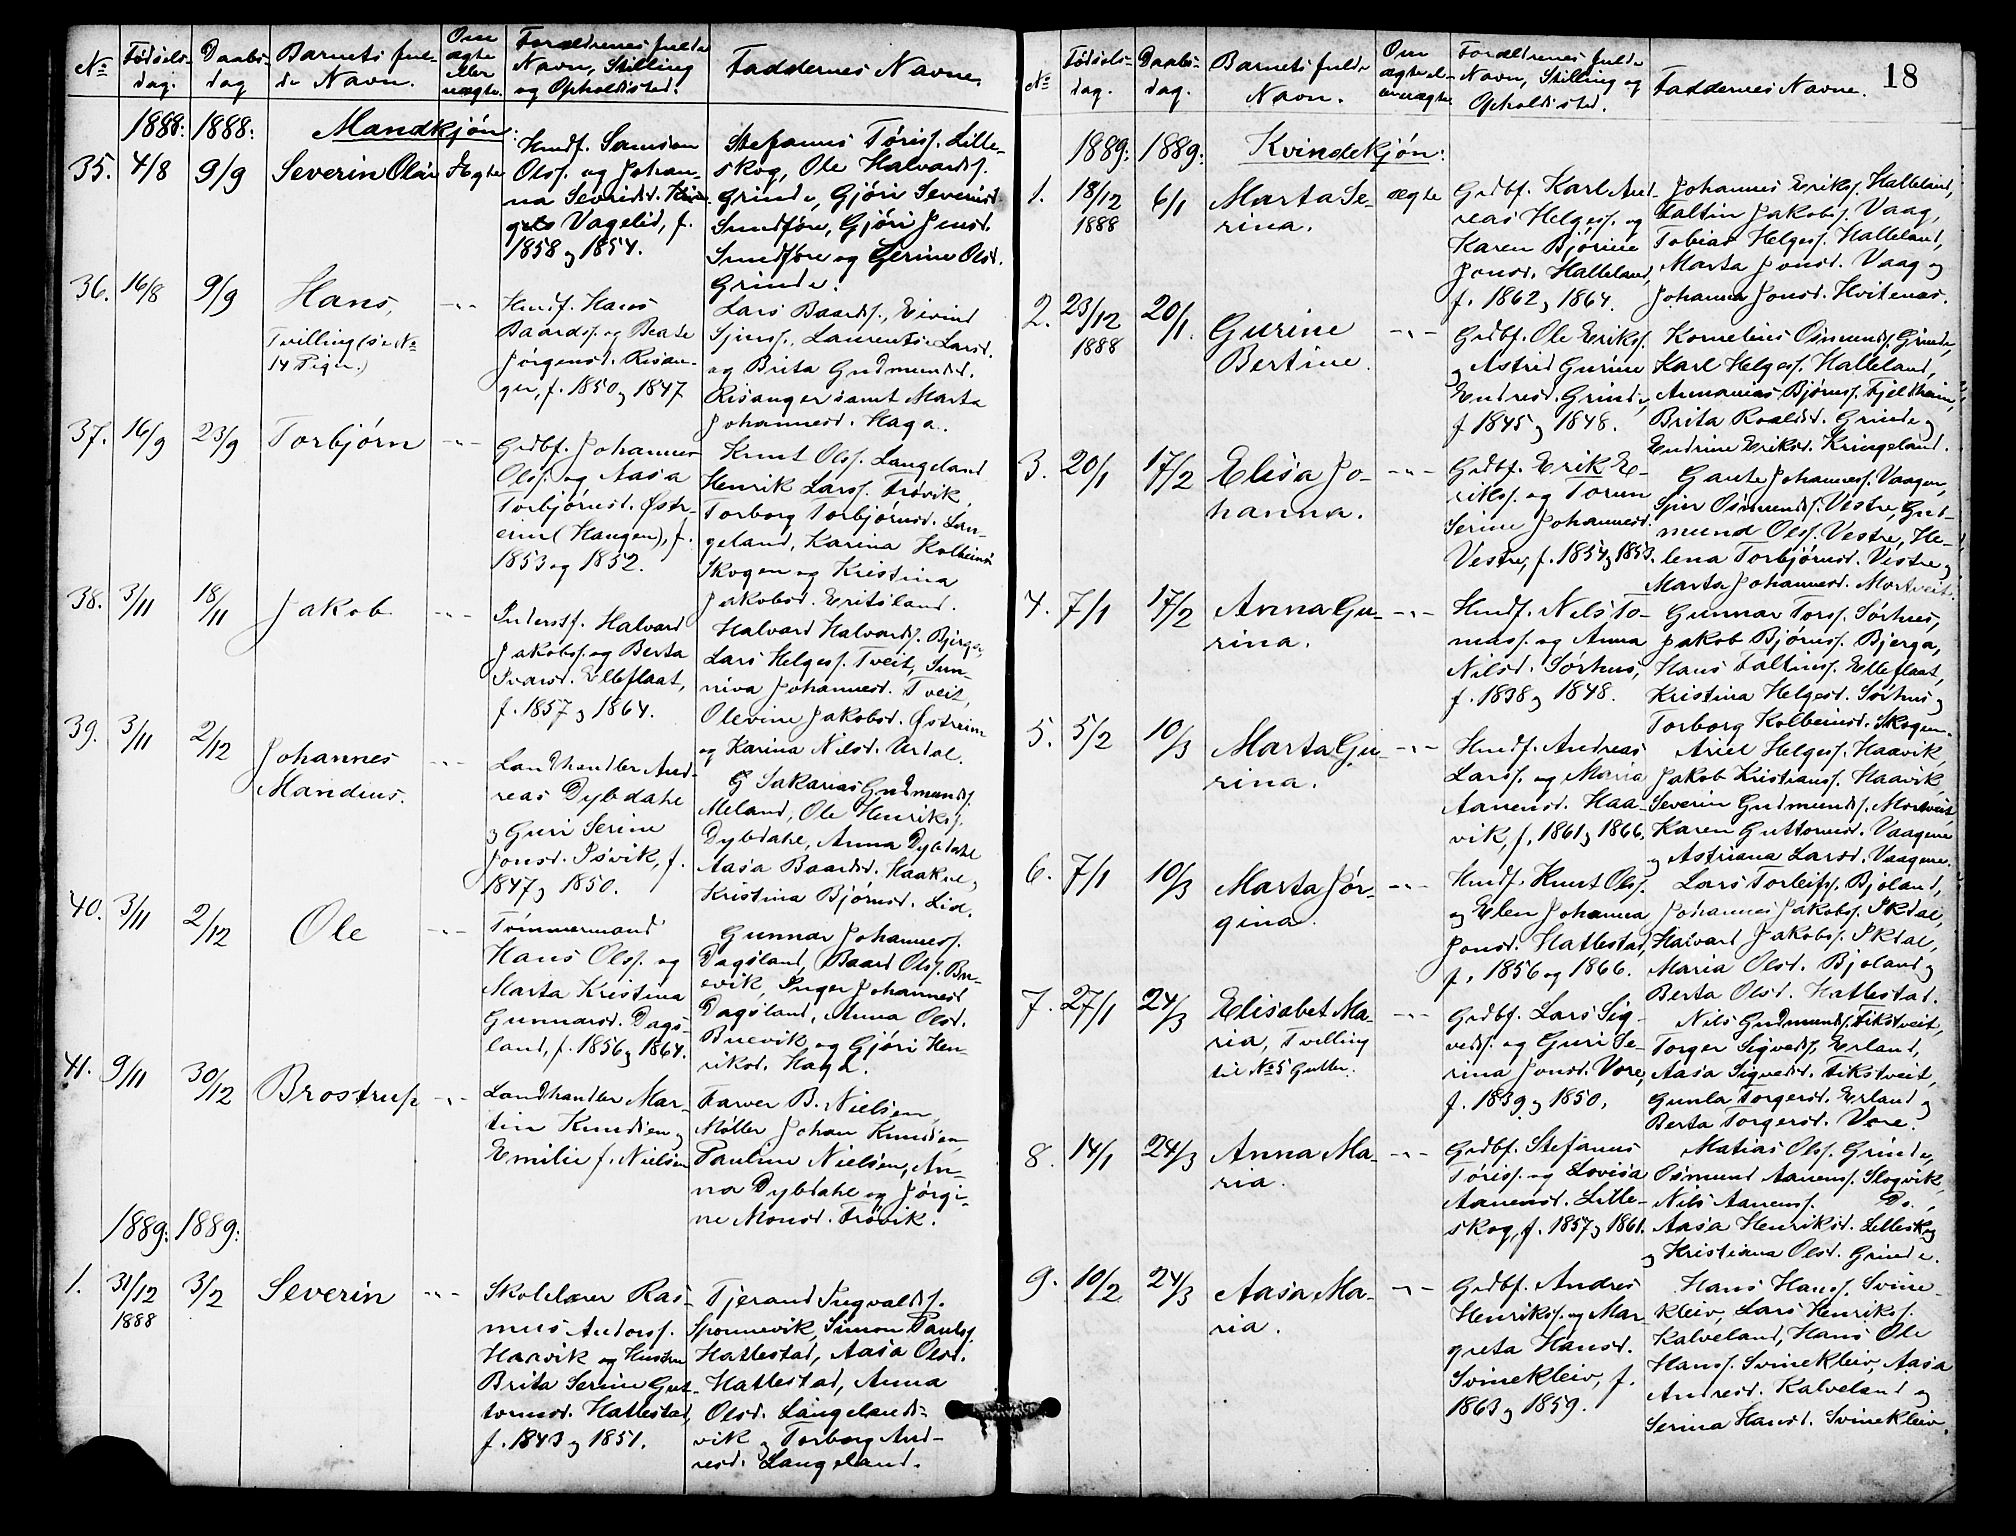 No
Fødsels-
dag.
Daabs-
dag
Barnets ful-
de Navn.
Om
ægte
eller
uægte.
Forældrenes fulde
Navn, Stilling
og Opholdssted.
Faddernes Navne.
1888: 1888: Mandkjøn:
35. 4/8 9/9 Severin Olai Ægte
Husmf. Samson
Ols. og Johan-
na Sevrinsd.
Vagelid, f.
1858 og 1854.
Stefanus Tøriss. Lille-
skog, Ole Halvards.
Grinde, Gjøri Severinsd.
Sundføre, Gjøri Jensd.
Sundføre og Gerine Olsd.
Grinde.
36. 16/8 9/9 Hans,
Tvilling (se No
14 Piger.)
-"-
Husmf. Hans
Baards. og Beate
Jørgensd. Risan-
ger, f. 1850 og 1847
Lars Baards., Eivind
Sjurs., Laurentse Larsd.
og Brita Gudmundsd.
Risanger samt Marta
Johannesd. Haga.
37. 16/9 23/9 Torbjørn -"-
Grdbf. Johannes
Ols. og Aasa
Torbjørnsd. Østr-
eim (Haugen), f.
1853 og 1852.
Knut Ols. Langeland
Henrik Larss. Frøvik,
Torborg Torbjørnsd. Lan-
geland, Karina Kolbeinsd.
Skogen og Kristina
Jakobsd. Eritsland.
38. 3/11 18/11 Jakob -"-
Inderstf. Halvard
Jakobs. og Berta
Ivarsd. Elleflaat,
f. 1857 og 1864.
Halvard Halvards. Bjerga,
Lars Helges. Tveit, Sun-
niva Johannesd. Tveit,
Olevine Jakobsd. Østreim
og Karina Nilsd. Urdal.
39. 3/11 2/12 Johannes
Mandius.
-"-
Landhandler And-
reas Dybdahl
og Guri Serine
Jonsd. Isvik, f.
1847 og 1850.
Sakarias Gudmunds.
Meland, Ole Henriks.
Dybdahl, Anna Dybdahl
Aasa Baardsd. Haakne,
Kristina Bjørnsd. Lid.
40. 3/11 2/12 Ole -"-
Tømmermand
Hans Ols. og
Marta Kristina
Gunnarsd. Dags-
land, f. 1856 og 1864.
Gunnar Johanness.
Dagsland, Baard Ols. Bu-
evik, Inger Johannesd.
Dagsland, Anna Olsd.
Buevik og Gjøri Hen-
riksd. Haga.
41. 9/11 30/12 Brostrup -"-
Landhandler Mar-
tin Knudsen og
Emilie f. Nielsen
Farver B. Nielsen,
Møller Johan Knudsen,
Pauline Nielsen, An-
na Dybdahl og Jørgi-
ne Monsd. Frøvik.
1889: 1889:
1. 31/12
1888
3/2 Severin -"-
Skolelærer Ras-
mus Anders.
Haavik og Hustru
Brita Serine Gut-
tormsd. Hattestad,
f. 1843 og 1851.
Tjerand Ingvalds.
Sponnevik, Simon Pauls.
Hattestad, Aasa Olsd.
Hattestad, Anna
Olsd. Langelands-
vik og Torborg And-
resd. Langeland.
18
No
Fødsels-
dag.
Daabs-
dag.
Barnets fulde
Navn.
Om
ægte el-
er uægte
Forældrenes fulde
Navn, Stilling og
Opholdssted.
Faddernes Navne.
1889: 1889: Kvindekjøn:
1. 18/12
1888
6/1 Marta Se-
rina.
ægte
Grdbf. Karl And-
reas Helges. og
Karen Bjørine
Jonsd. Halleland,
f. 1862 og 1864.
Johannes Eriks. Halleland,
Faltin Jakobs. Vaag,
Tobias Helges. Halleland,
Marta Jonsd. Vaag og
Johanna Jonsd. Hvitenæs.
2. 23/12
1888
20/1. Gurine
Bertine.
-"-
Grdbf. Ole Eriks.
og Astrid Gurine
Endresd. Grinde,
f. 1845 og 1848.
Kornelius Osmunds. Grinde,
Karl Helges. Halleland,
Annanias Bjørns. Fjeldheim,
Brita Roaldsd. Grinde og
Endrine Eriksd. Kringeland.
3. 20/1 17/2 Elisa Jo-
hanna.
-"-
Grdbf. Erik E-
riks. og Torun
Serine Johannesd.
Vestre, f. 1854 og 1853.
Gaute Johanness. Vaagen,
Sjur Osmunds. Vestre, Gud-
mund Ols. Vestre, He-
lena Torbjørnsd. Vestre og
Marta Johannesd. Mortveit.
4. 7/1 17/2 Anna Gu-
rina.
-"-
Husmf. Nils To-
mass. og Anna
Nilsd. Sørhus,
f. 1838 og 1848.
Gunnar Torss. Sørhus,
Jakob Bjørns. Bjerga,
Hans Faltins. Elleflaat,
Kristina Helgesd. Sørhus og
Torborg Kolbeinsd. Skogen.
5. 5/2 10/3 Marta Gu-
rina.
-"-
Husmf. Andreas
Larss. og Maria
Aanensd. Haa-
vik, f. 1861 og 1866.
Ariel Helges. Haavik,
Jakob Kristians. Haavik,
Severin Gudmunds. Mortveit,
Karen Guttormsd. Vaagene
og Astriana Larsd. Vaagene.
6. 7/1 10/3 Marta Jør-
gina.
-"-
Husmf. Knut Ols.
og Elen Johanna
Jonsd. Hattestad,
f. 1856 og 1866.
Lars Torleifs. Bjoland,
Johannes Jakobs. Ikdal,
Halvard Jakobs. Ikdal,
Maria Olsd. Bjoland og
Berta Olsd. Hattestad.
7. 27/1 24/3 Elisabet Ma-
ria, Tvilling
til No 5 Gutter.
-"-
Grdbf. Lars Sig-
veds. og Guri Se-
rina Jonsd. Vore,
f. 1839 og 1850.
Nils Gudmunds. Fikstveit,
Torger Sigveds. Erland,
Aasa Sigvedsd. Fikstveit,
Gunla Torgersd. Erland og
Berta Torgersd. Vore.
8. 14/1 24/3 Anna Ma-
ria.
-"-
Grdbf. Stefanus
Tøriss. og Lovisa
Aanensd. Lille-
skog, f. 1857 og 1861.
Matias Ols. Grinde,
Osmund Aanens. Slogvik,
Nils Aanens. Do.,
Aasa Henriksd. Lilleskog
og Kristiana Olsd. Grinde.
9. 10/2 24/3 Aasa Ma-
ria.
-"-
Grdbf. Andres
Henriks. og Mar-
greta Hansd.
Svinekleiv, f.
1863 og 1859.
Hans Hans. Svine-
kleiv, Lars Henriks.
Kalveland, Hans Ole
Hans. Svinekleiv, Aasa
Andresd. Kalveland og
Serina Hansd. Svinekleiv.